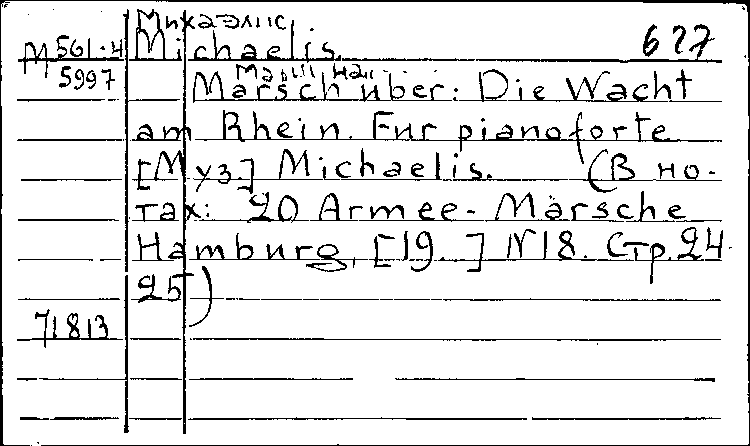 Михаэлис
М 561-4 Michaelis. 677
5997
Marsch über: Die Wacht
am Rhein. Fur pianoforte
[Муз.] Michaelis. (В но-
тах: 20 Armee-Märsche
Hamburg, [19. ] N18. Стр. 24
25)
71813